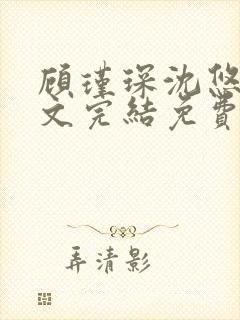 顾瑾琛沈悠
文完結免費
弄清影